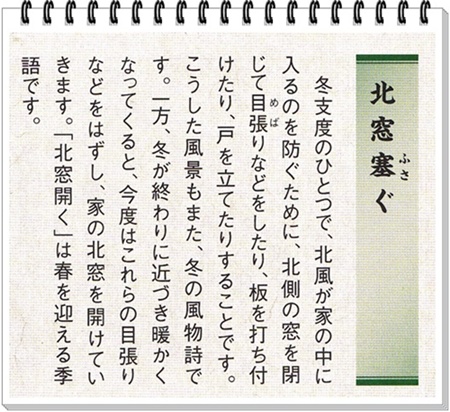 北窓塞ぐ
ふさ
冬支度のひとつで、北風が家の中に
入るのを防ぐために、北側の窓を閉
じて目張りなどをしたり、板を打ち付
めば
けたり、戸を立てたりすることです。
こうした風景もまた、冬の風物詩で
す。一方、冬が終わりに近づき暖かく
なってくると、今度はこれらの目張り
などをはずし、家の北窓を開けてい
きます。「北窓開く」は春を迎える季
語です。